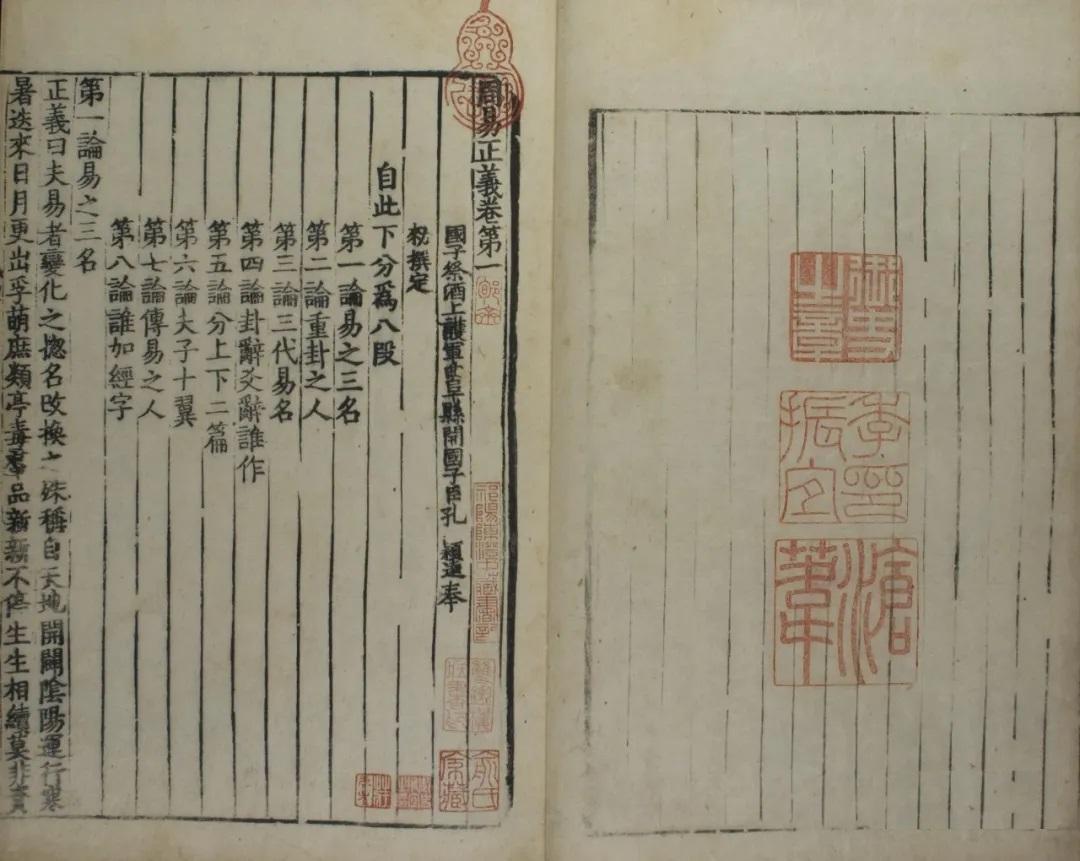 周易正義卷第一
國子祭酒上護軍曲阜縣開國子臣孔 穎達奉
敕撰定
自此下分為八段
第一論易之三名
第二論重卦之人
第三論三代易名
第四論卦辭爻辭誰作
第五論分上下二篇
第六論夫子十翼
第七論傳易之人
第八論誰加經字
第一論易之三名
正義曰夫易者變化之揔名改換之殊稱自天地開闢陰陽運行寒
暑迭來日月更出孚萌庶類亭毒羣品新新不停生生相續莫非資
俞氏
家藏
季印
振宜
滄
葦